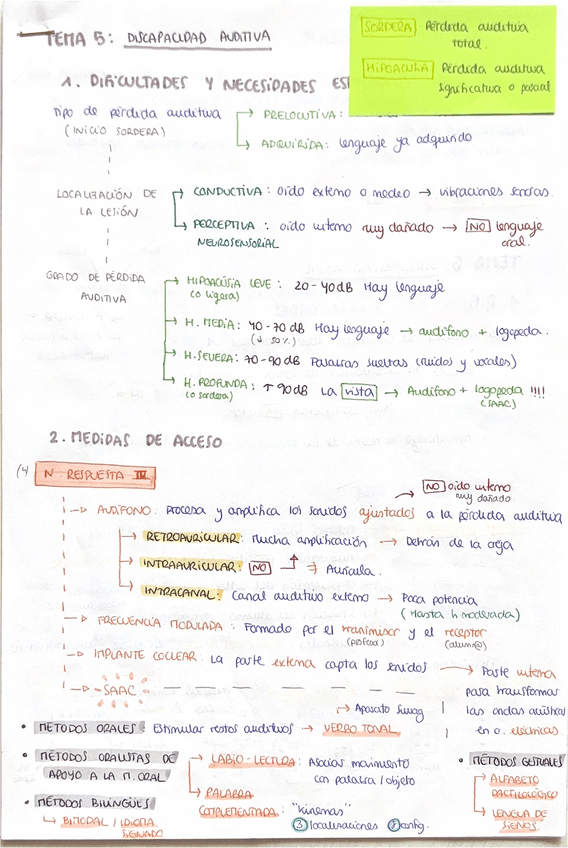 TEMA 5: DISCAPACIDAD AUDITIVA
SORDERA Pérdida auditiva
total.
HIPOACUSIA Pérdida auditiva
significativa o parcial
1. DIFICULTADES Y NECESIDADES
Tipo de pérdida auditiva
(INICIO SORDERA)
PRELOCUTIVA:
ADQUIRIDA: lenguaje ya adquirido
LOCALIZACIÓN DE
LA LESIÓN
CONDUCTIVA: oído externo o medio → vibraciones sonoras.
PERCEPTIVA: oído interno muy dañado → NO lenguaje
NEUROSENSORIAL oral.
GRADO DE PÉRDIDA
AUDITIVA
HIPOACUSIA LEVE: 20-40dB Hay lenguaje
(o ligera)
H. MEDIA: 40-70dB Hay lenguaje → audífono + logopeda.
(↓ 50%)
H. SEVERA: 70-90dB Palabras sueltas (ruidos y vocales)
H. PROFUNDA: ↑ 90dB La vista → Audífono + logopeda !!!!
(o sordera) (SAAC)
2. MEDIDAS DE ACCESO
(4 N RESPUESTA III
→ NO oído interno
muy dañado
→ AUDÍFONO: Procesa y amplifica los sonidos ajustados a la pérdida auditiva
RETROAURICULAR: mucha amplificación → Detrás de la oreja
INTRAAURICULAR: NO → Aurícula.
INTRACANAL: Canal auditivo externo → Poca potencia
(Hasta h moderada)
→ FRECUENCIA MODULADA: Formado por el transmisor y el receptor
(profesor) (alumn@)
→ IMPLANTE COCLEAR: La parte externa capta los sonidos → Parte interna
para transformar
las ondas acústicas
en o. eléctricas.
→ SAAC
→ Aparato Suvag
• MÉTODOS ORALES: Estimular restos auditivos → VERBO TONAL
• MÉTODOS ORALISTAS DE
APOYO A LA M. ORAL
→ LABIO-LECTURA: Asociar movimiento
con palabra/objeto
→ PALABRA
COMPLEMENTADA: "kinemas"
③ localizaciones ⑧ config.
• MÉTODOS BILINGÜES
→ BIMODAL / IDIOMA
SIGNADO
• MÉTODOS GESTUALES
→ ALFABETO
DACTILOLÓGICO
→ LENGUA DE
SIGNOS